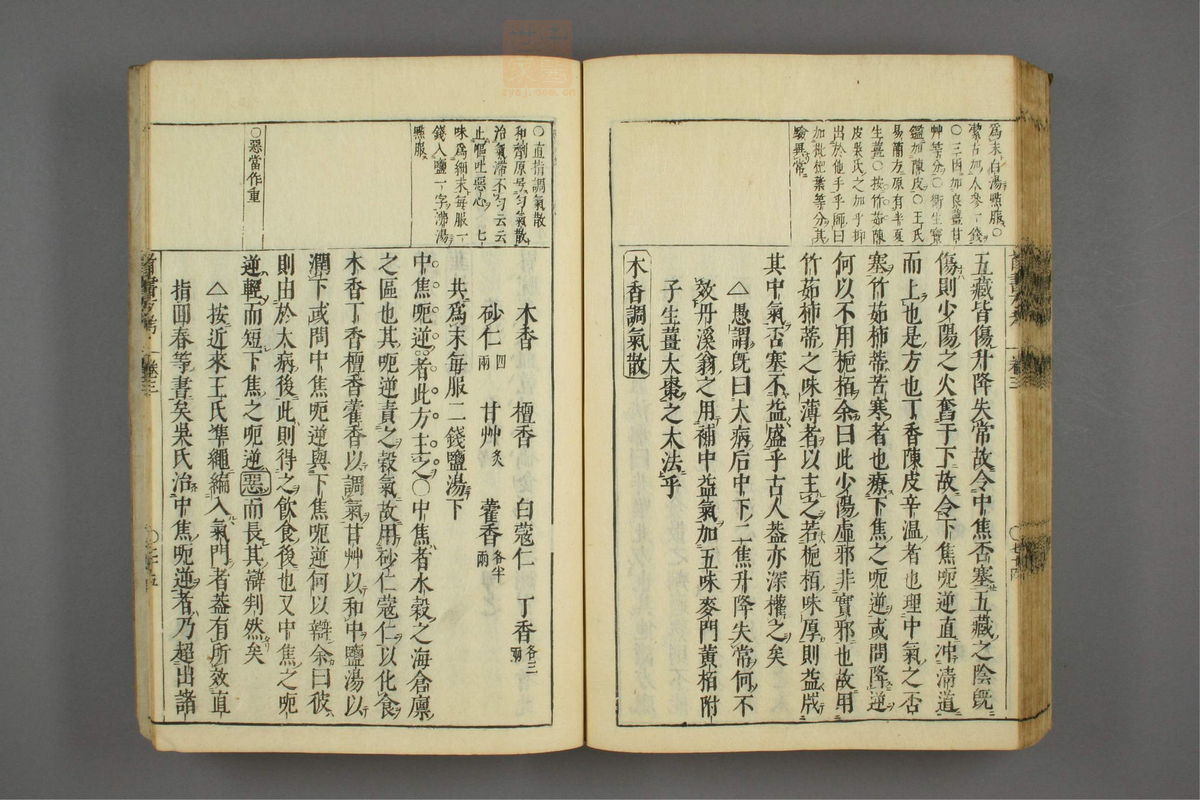 為末白湯㸃服〇
潔古加人參一錢
〇三因加良薑甘
艸等分〇衛生寶
鑑加陳皮〇王氏
易簡方原有半夏
生薑〇按竹茹陳
皮吳氏之加乎抑
出於他乎乎師曰
加枇杷葉等分其
驗異常
五藏皆傷升降失常故令中焦否塞五藏之陰旣
傷則少陽之火奮于下故令下焦呃逆直冲淸道
而上也是方也丁香陳皮辛温者也理中氣之否
塞竹茹柿蒂苦寒者也療下焦之呃逆或問降逆
何以不用梔栢余曰此少陽虛邪非實邪也故用
竹茹柿蒂之味薄者以主之若梔栢味厚則益戕
其中氣否塞不益盛乎古人葢亦深權之矣
△愚謂旣曰大病后中下二焦升降失常何不
效丹溪翁之用補中益氣加五味麥門黃栢附
子生薑大棗之大法乎
木香調氣散
〇直指調氣散
和劑原号匀氣散
治氣滯不匀云云
止嘔吐惡心 七
味為細末每服一
錢入鹽一字沸湯
㸃服
〇惡當作重
木香 檀香 白蔻仁 丁香各三兩
砂仁四兩 甘艸炙 藿香各半兩
共為末每服二錢鹽湯下
中焦呃逆者此方主之〇中焦者水穀之海倉廪
之區也其呃逆責之穀氣故用砂仁蔻仁以化食
木香丁香檀香藿香以調氣甘艸以和中鹽湯以
潤下或問中焦呃逆與下焦呃逆何以辯余曰彼
則由於大病後此則得之飲食後也又中焦之呃
逆輕而短下焦之呃逆惡而長其辯判然矣
△按近來王氏準繩編入氣門者葢有所效直
指囬春等書矣吳氏治中焦呃逆者乃超出諸
卷三